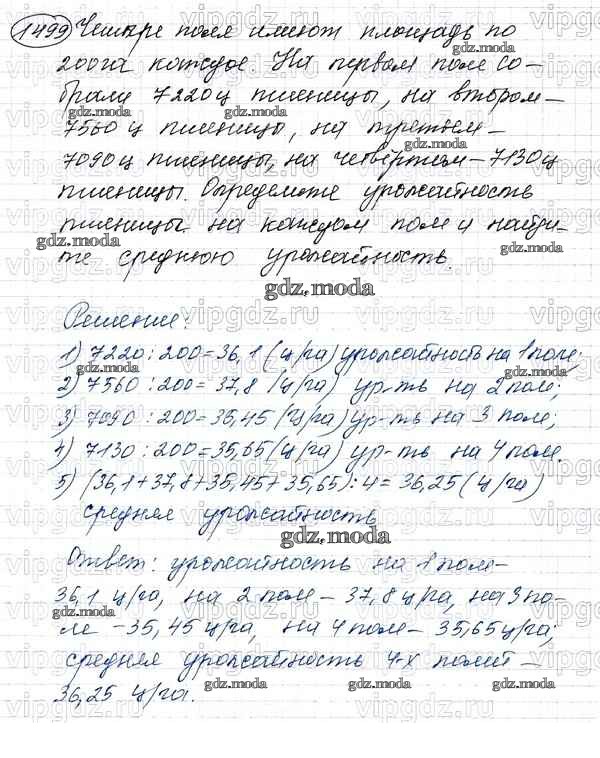 1499 Четыре поля имеют площадь по
200га каждое. На первом поле со-
брали 7220ц пшеницы, на втором –
7560 ц пшеницы, на третьем –
7090ц пшеницы, на четвёртом – 7130ц
пшеницы. Определите урожайность
пшеницы на каждом поле и найди-
те среднюю урожайность.
gdz.moda
Решение:
1) 7220 : 200 = 36,1 (ц/га) урожайность на 1 поле;
2) 7560 : 200 = 37,8 (ц/га) ур-ть на 2 поле;
3) 7090 : 200 = 35,45 (ц/га) ур-ть на 3 поле;
4) 7130 : 200 = 35,65 (ц/га) ур-ть на 4 поле.
5) (36,1 + 37,8 + 35,45 + 35,65) : 4 = 36,25 (ц/га)
средняя урожайность
gdz.moda
Ответ: урожайность на 1 поле –
36,1 ц/га, на 2 поле – 37,8 ц/га, на 3 по-
ле – 35,45 ц/га, на 4 поле – 35,65 ц/га;
средняя урожайность 4-х полей –
36,25 ц/га.